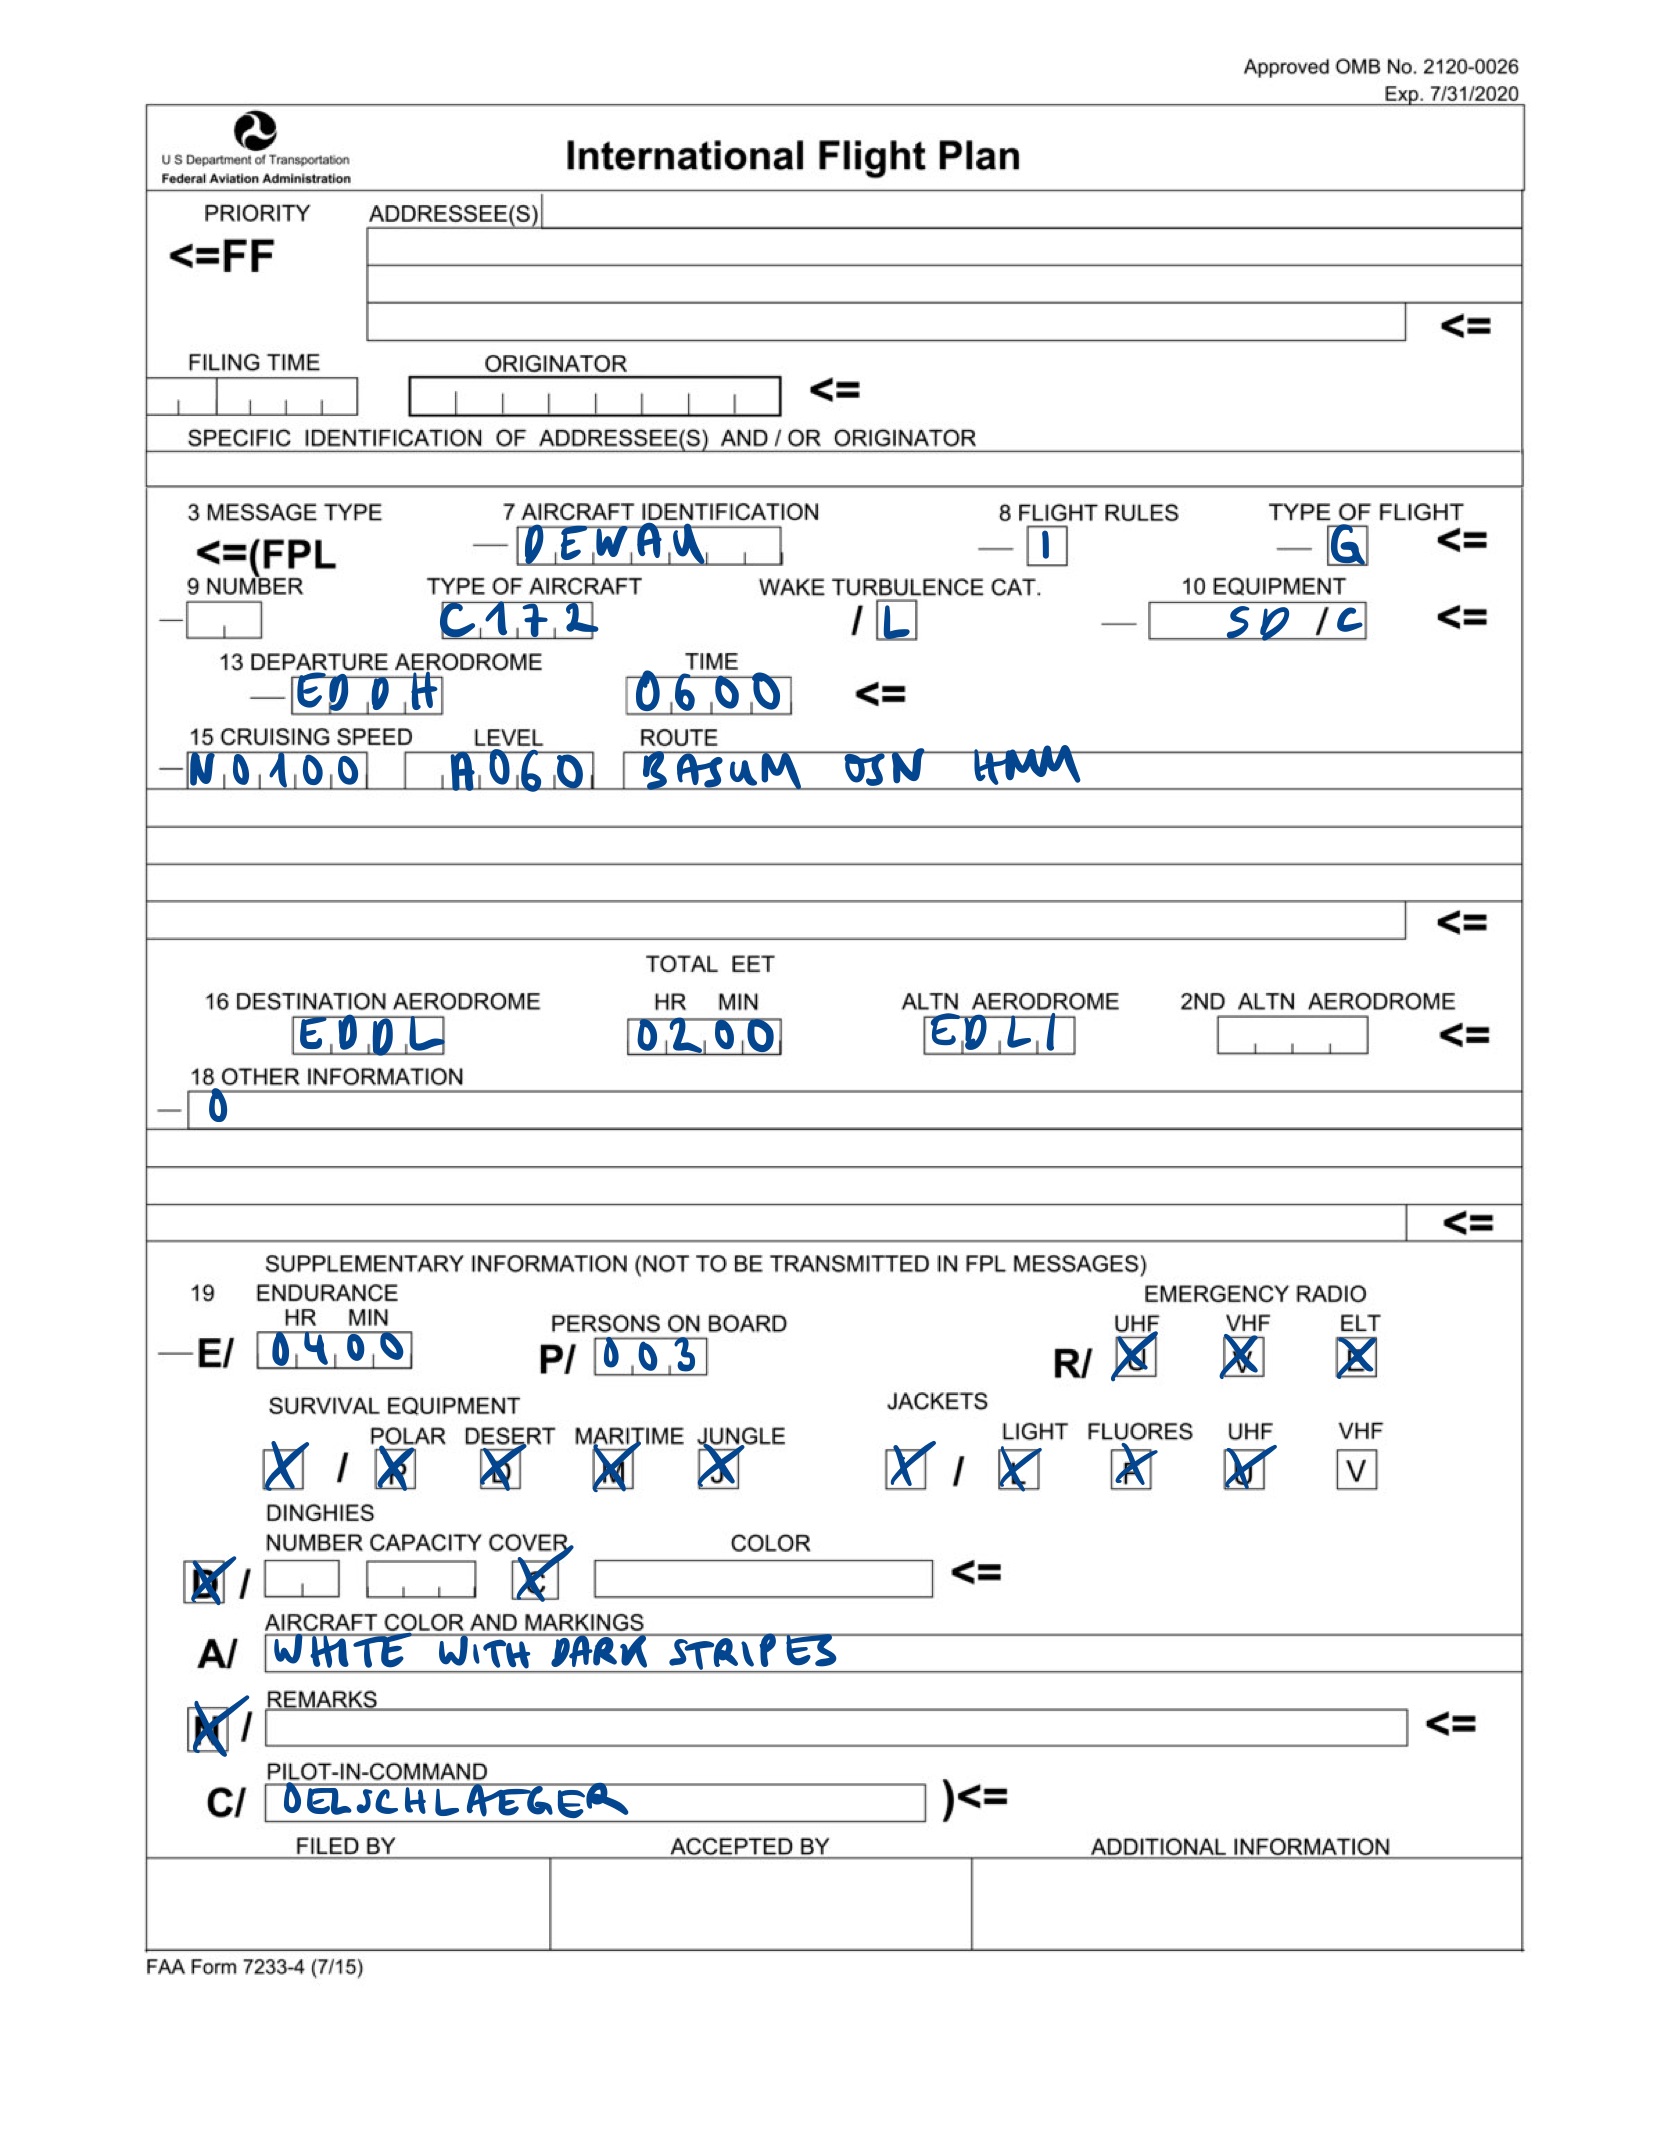 Approved OMB No. 2120-0026
Exp. 7/31/2020
U S Department of Transportation
Federal Aviation Administration
International Flight Plan
PRIORITY ADDRESSEE(S)
<=FF
<=
FILING TIME ORIGINATOR
<=
SPECIFIC IDENTIFICATION OF ADDRESSEE(S) AND / OR ORIGINATOR
3 MESSAGE TYPE 7 AIRCRAFT IDENTIFICATION 8 FLIGHT RULES TYPE OF FLIGHT
<=(FPL — DEWAU — I — G <=
9 NUMBER TYPE OF AIRCRAFT WAKE TURBULENCE CAT. 10 EQUIPMENT
— C172 / L — SD /C <=
13 DEPARTURE AERODROME TIME
— EDDH 0600 <=
15 CRUISING SPEED LEVEL ROUTE
— N0100 A060 BASUM OSN HMM
<=
TOTAL EET
16 DESTINATION AERODROME HR MIN ALTN AERODROME 2ND ALTN AERODROME
EDDL 0200 EDLI <=
18 OTHER INFORMATION
— 0
<=
SUPPLEMENTARY INFORMATION (NOT TO BE TRANSMITTED IN FPL MESSAGES)
19 ENDURANCE EMERGENCY RADIO
HR MIN PERSONS ON BOARD UHF VHF ELT
— E/ 0400 P/ 003 R/ U V E
SURVIVAL EQUIPMENT JACKETS
POLAR DESERT MARITIME JUNGLE LIGHT FLUORES UHF VHF
X / P D M J X / L F U V
DINGHIES
NUMBER CAPACITY COVER COLOR
D / C <=
AIRCRAFT COLOR AND MARKINGS
A/ WHITE WITH DARK STRIPES
REMARKS
N / <=
PILOT-IN-COMMAND
C/ OELSCHLAEGER )<=
FILED BY ACCEPTED BY ADDITIONAL INFORMATION
FAA Form 7233-4 (7/15)